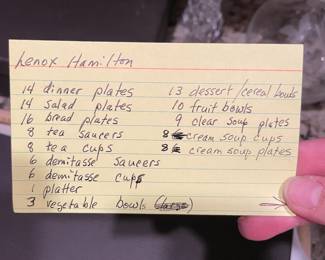 Lenox Hamilton
14 dinner plates
14 salad plates
16 bread plates
8 tea saucers
8 tea cups
6 demitasse saucers
6 demitasse cups
1 platter
3 vegetable bowls
13 dessert/cereal bowls
10 fruit bowls
9 clear soup plates
8 cream soup cups
8 cream soup plates